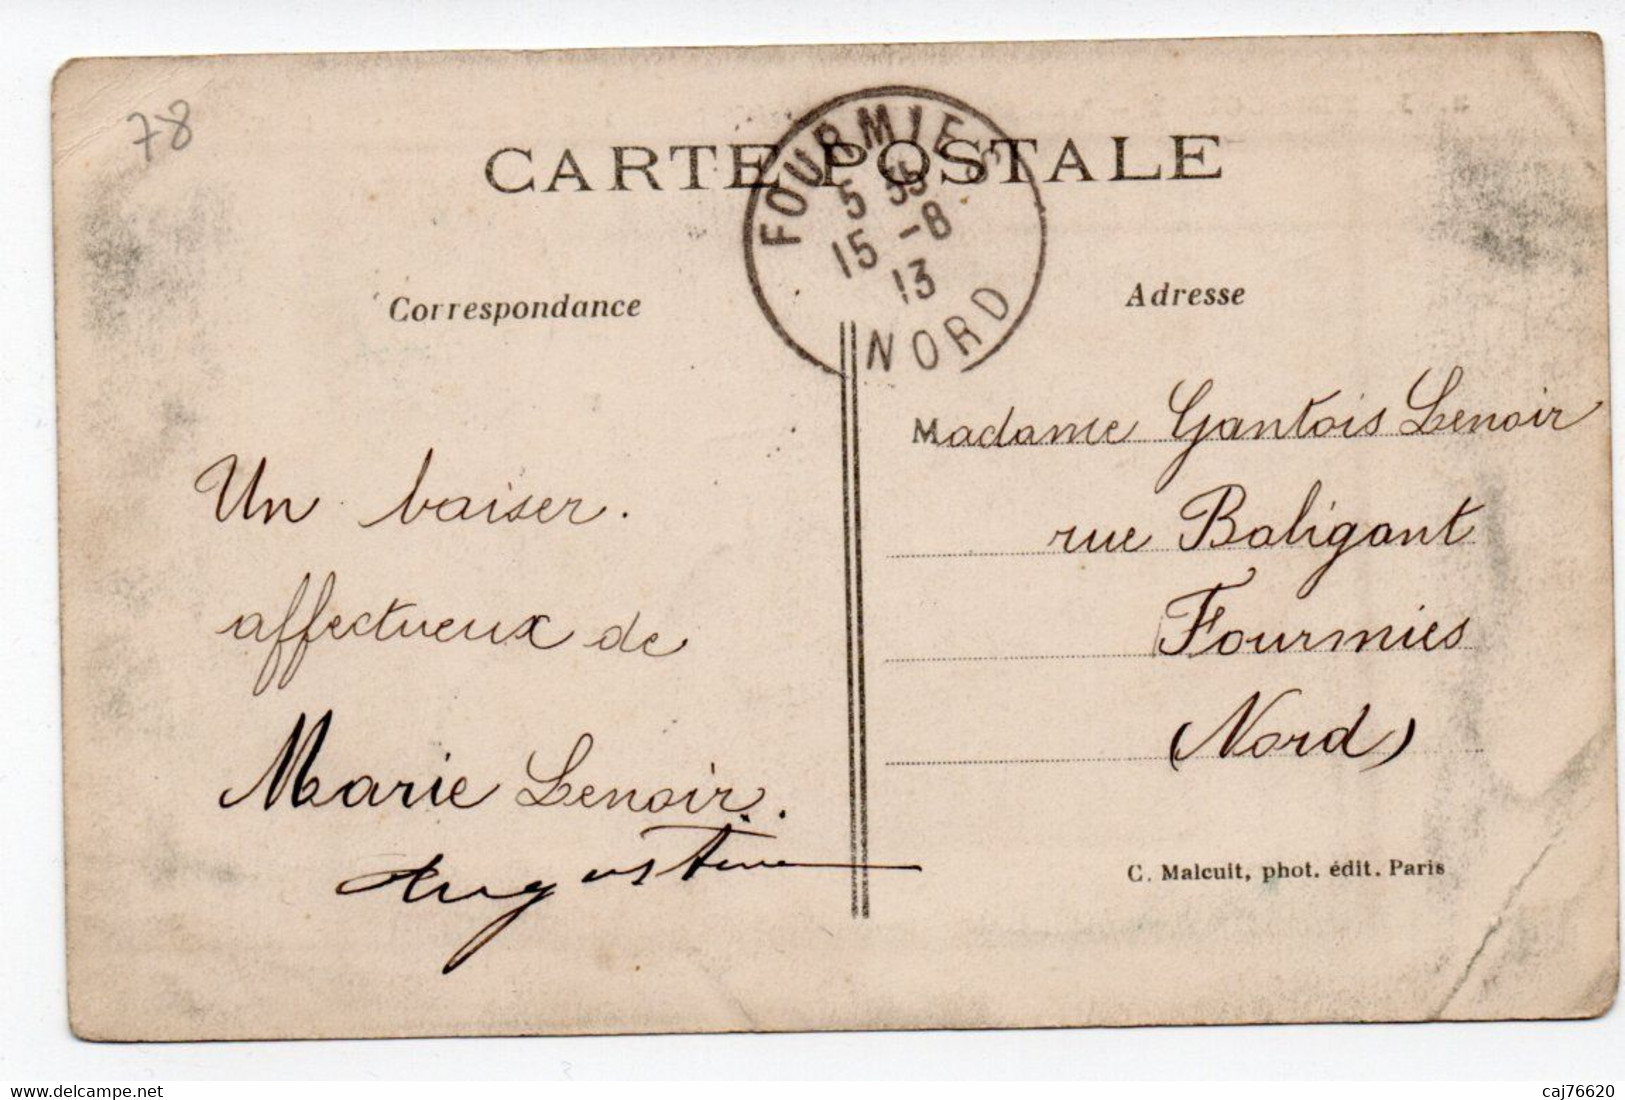 78
CARTE POSTALE
FOURMIES
5 35
15 -8
13
NORD
Correspondance
Adresse
Un baiser.
affectueux de
Marie Lenoir.
Augustine
Madame Gantois Lenoir
rue Baligant
Fourmies
(Nord)
C. Malcuit, phot. édit. Paris
www.delcampe.net
caj76620